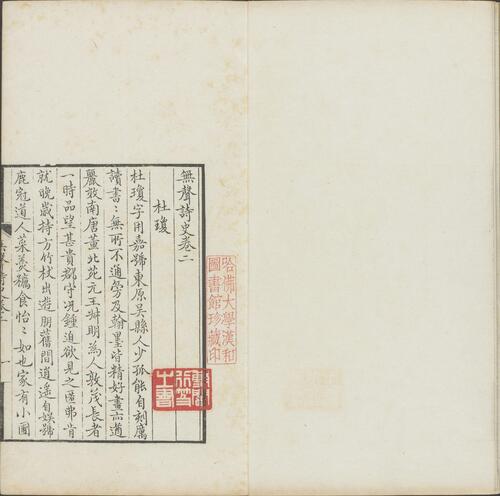 無聲詩史卷二
杜瓊
杜瓊字用嘉號東原吳縣人少孤能自刻厲
讀書〻無所不通旁及翰墨皆精好畫亦遒
麗敩南唐董北苑元王叔明為人敦茂長者
一時品望甚貴郡守况鍾迫欲見之匿弗肯
就晚歲持方竹杖出遊朋舊間逍遥自娛號
鹿冠道人菜羹糲食怡〻如也家有小圃
無聲詩史卷二
一
哈佛大學漢和
圖書館珍藏印